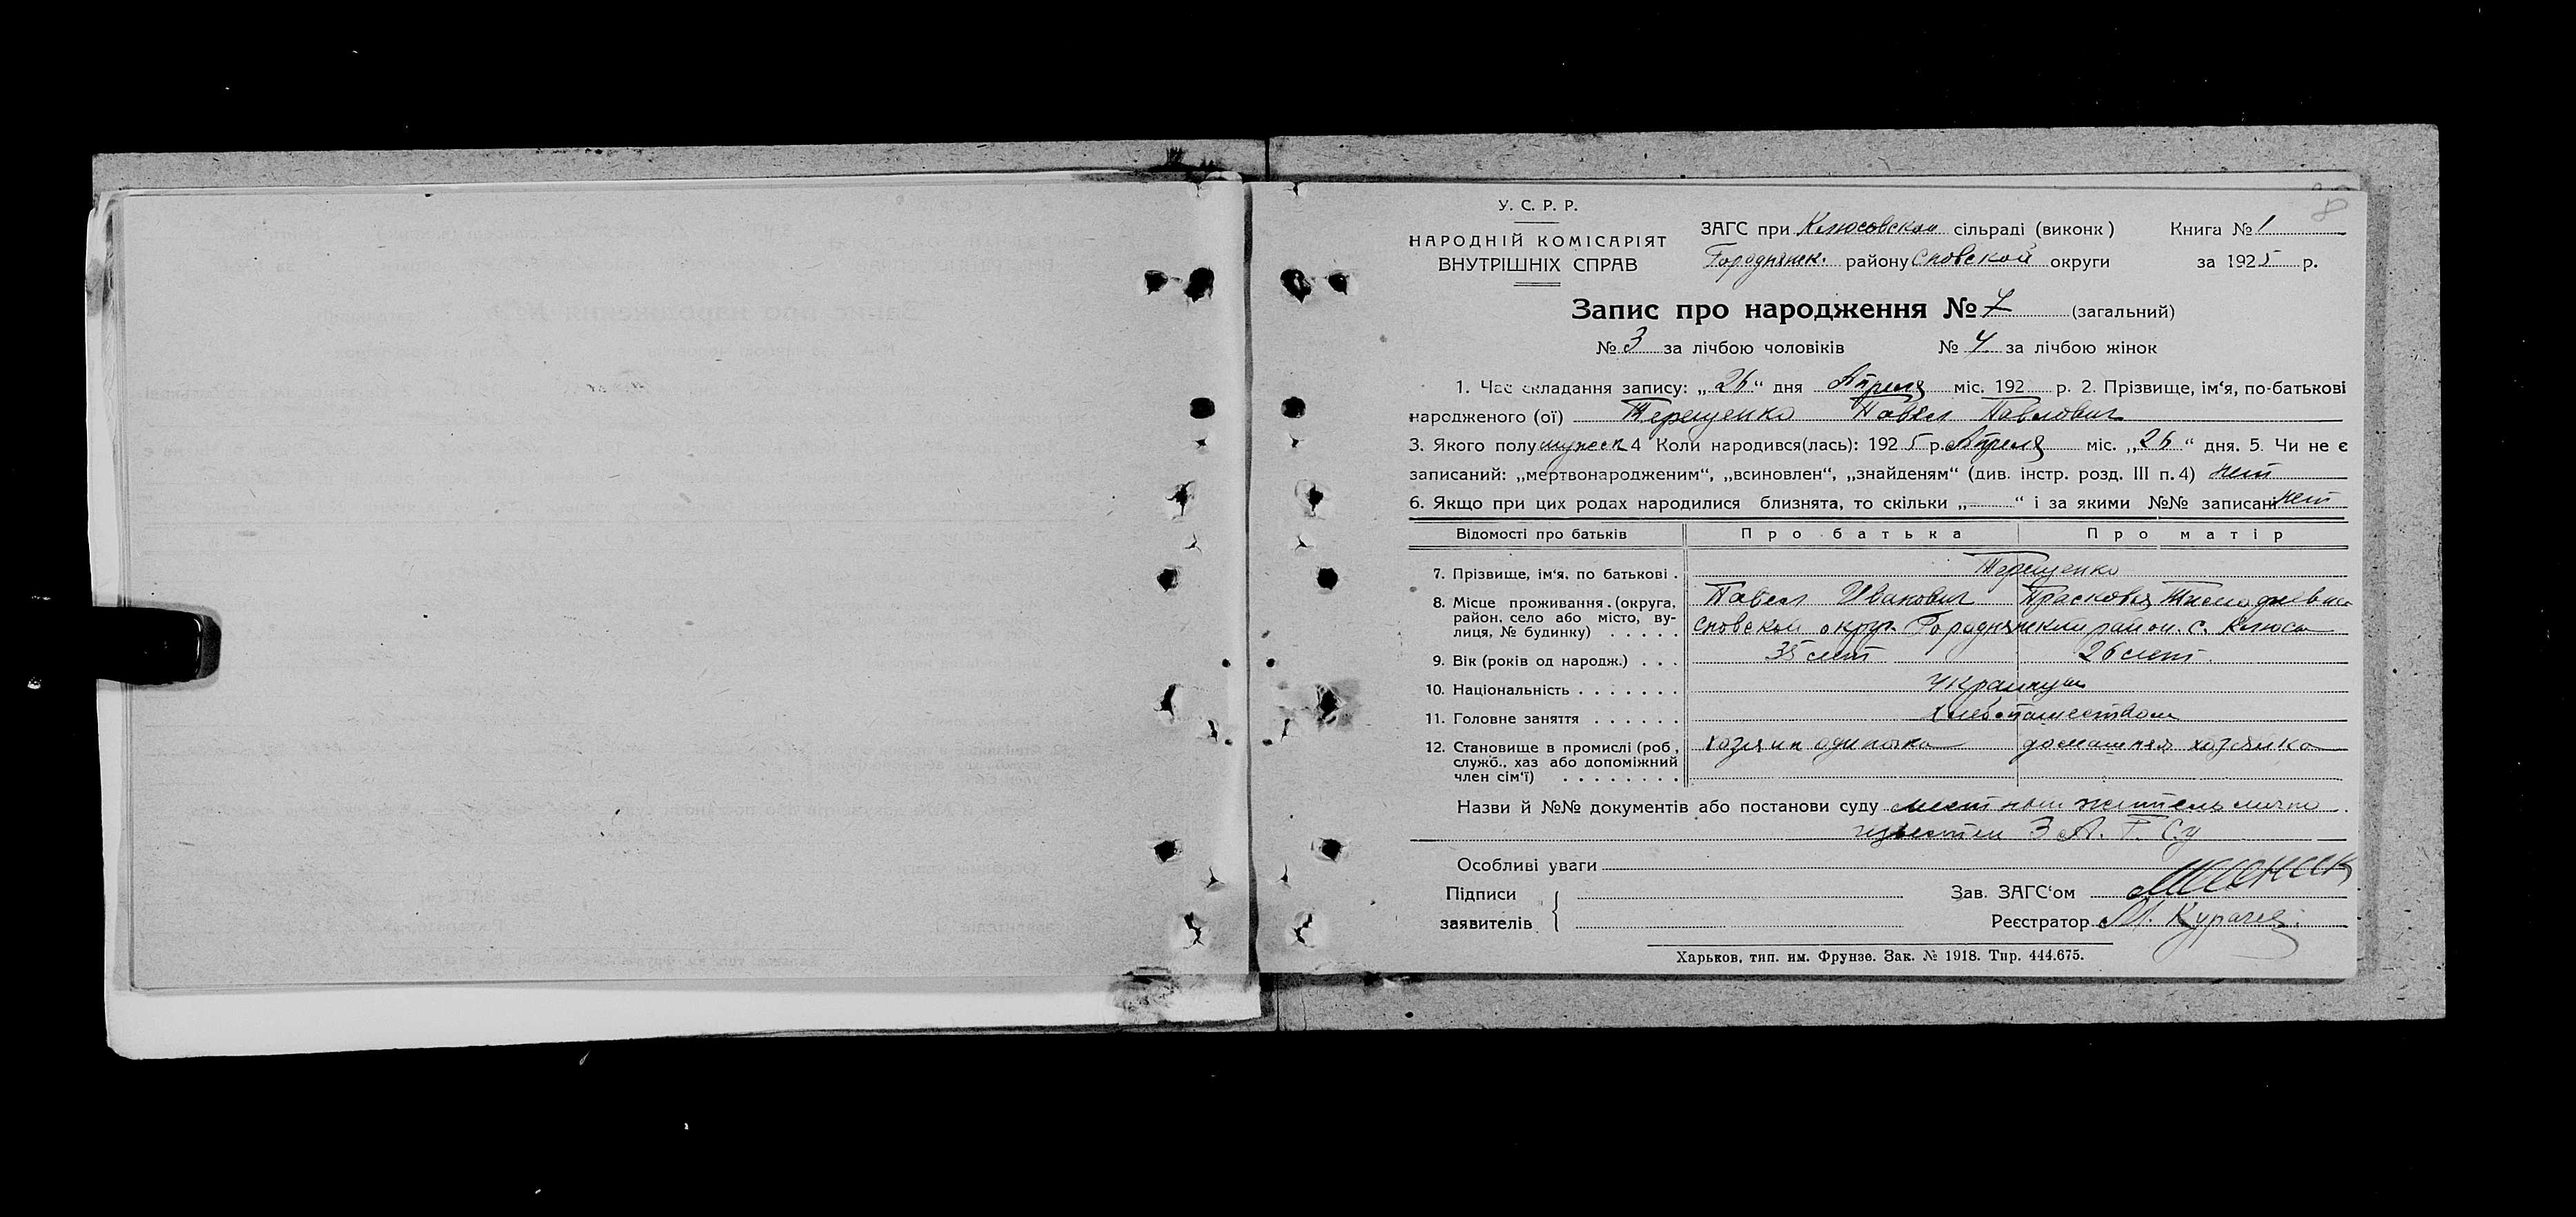 8
У. С. Р. Р.
НАРОДНІЙ КОМІСАРІЯТ
ВНУТРІШНІХ СПРАВ
ЗАГС при Клюсовском сільраді (виконк) Книга № 1
Городнянск. району Сновской округи за 1925 р.
Запис про народження № 7 (загальний)
№ 3 за лічбою чоловіків № 4 за лічбою жінок
1. Час складання запису: „26“ дня Апреля міс. 192 р. 2. Прізвище, ім‘я, по-батькові
народженого (ої) Терещенко Павел Павлович
3. Якого полу мужеск 4 Коли народився(лась): 1925 р. Апреля міс. „26“ дня. 5. Чи не є
записаний: „мертвонародженим“, „всиновлен“, „знайденям“ (див. інстр. розд. III п. 4) нет
6. Якщо при цих родах народилися близнята, то скільки „—“ і за якими №№ записані нет
Відомості про батьків Про батька Про матір
7. Прізвище, ім‘я, по батькові . Терещенко
Павел Иванович Прасковья
8. Місце проживання . (округа, район, село або місто, ву-
лиця, № будинку) . . . . . Сновской округ. Городнянский район. с. Клюсы
9. Вік (років од народж.) . . . 35 лет 26 лет.
10. Національність . . . . . . . Украинцы
11. Головне заняття . . . . . . хлебопашеством
12. Становище в промислі (роб., хозяин одиночка домашняя хозяйка
служб., хаз або допоміжний
член сім‘ї) . . . . . . . .
Назви й №№ документів або постанови суду местный житель лично
известен З А. Г. Су
Особливі уваги
Підписи Зав. ЗАГС‘ом
заявителів Реєстратор М.
Харьков, тип. им. Фрунзе. Зак. № 1918. Тир. 444.675.